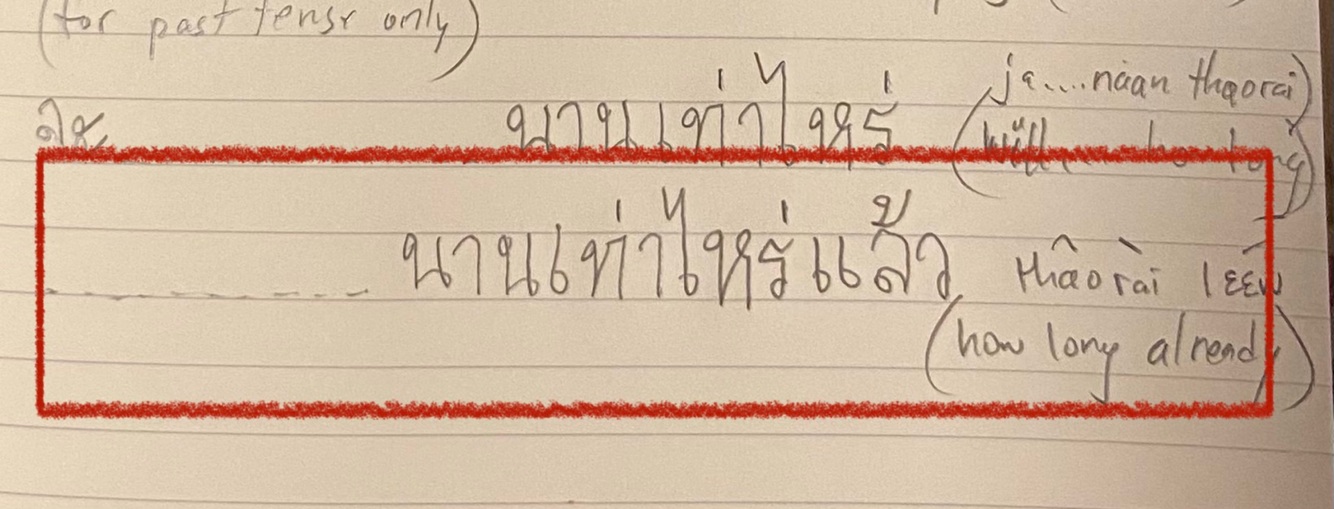 (for past tense only)
จะ นานเท่าไหร่ (ja....nâan thâorài)
(will...how long)
-------- นานเท่าไหร่แล้ว thâorài lɛ́ɛw
(how long already)